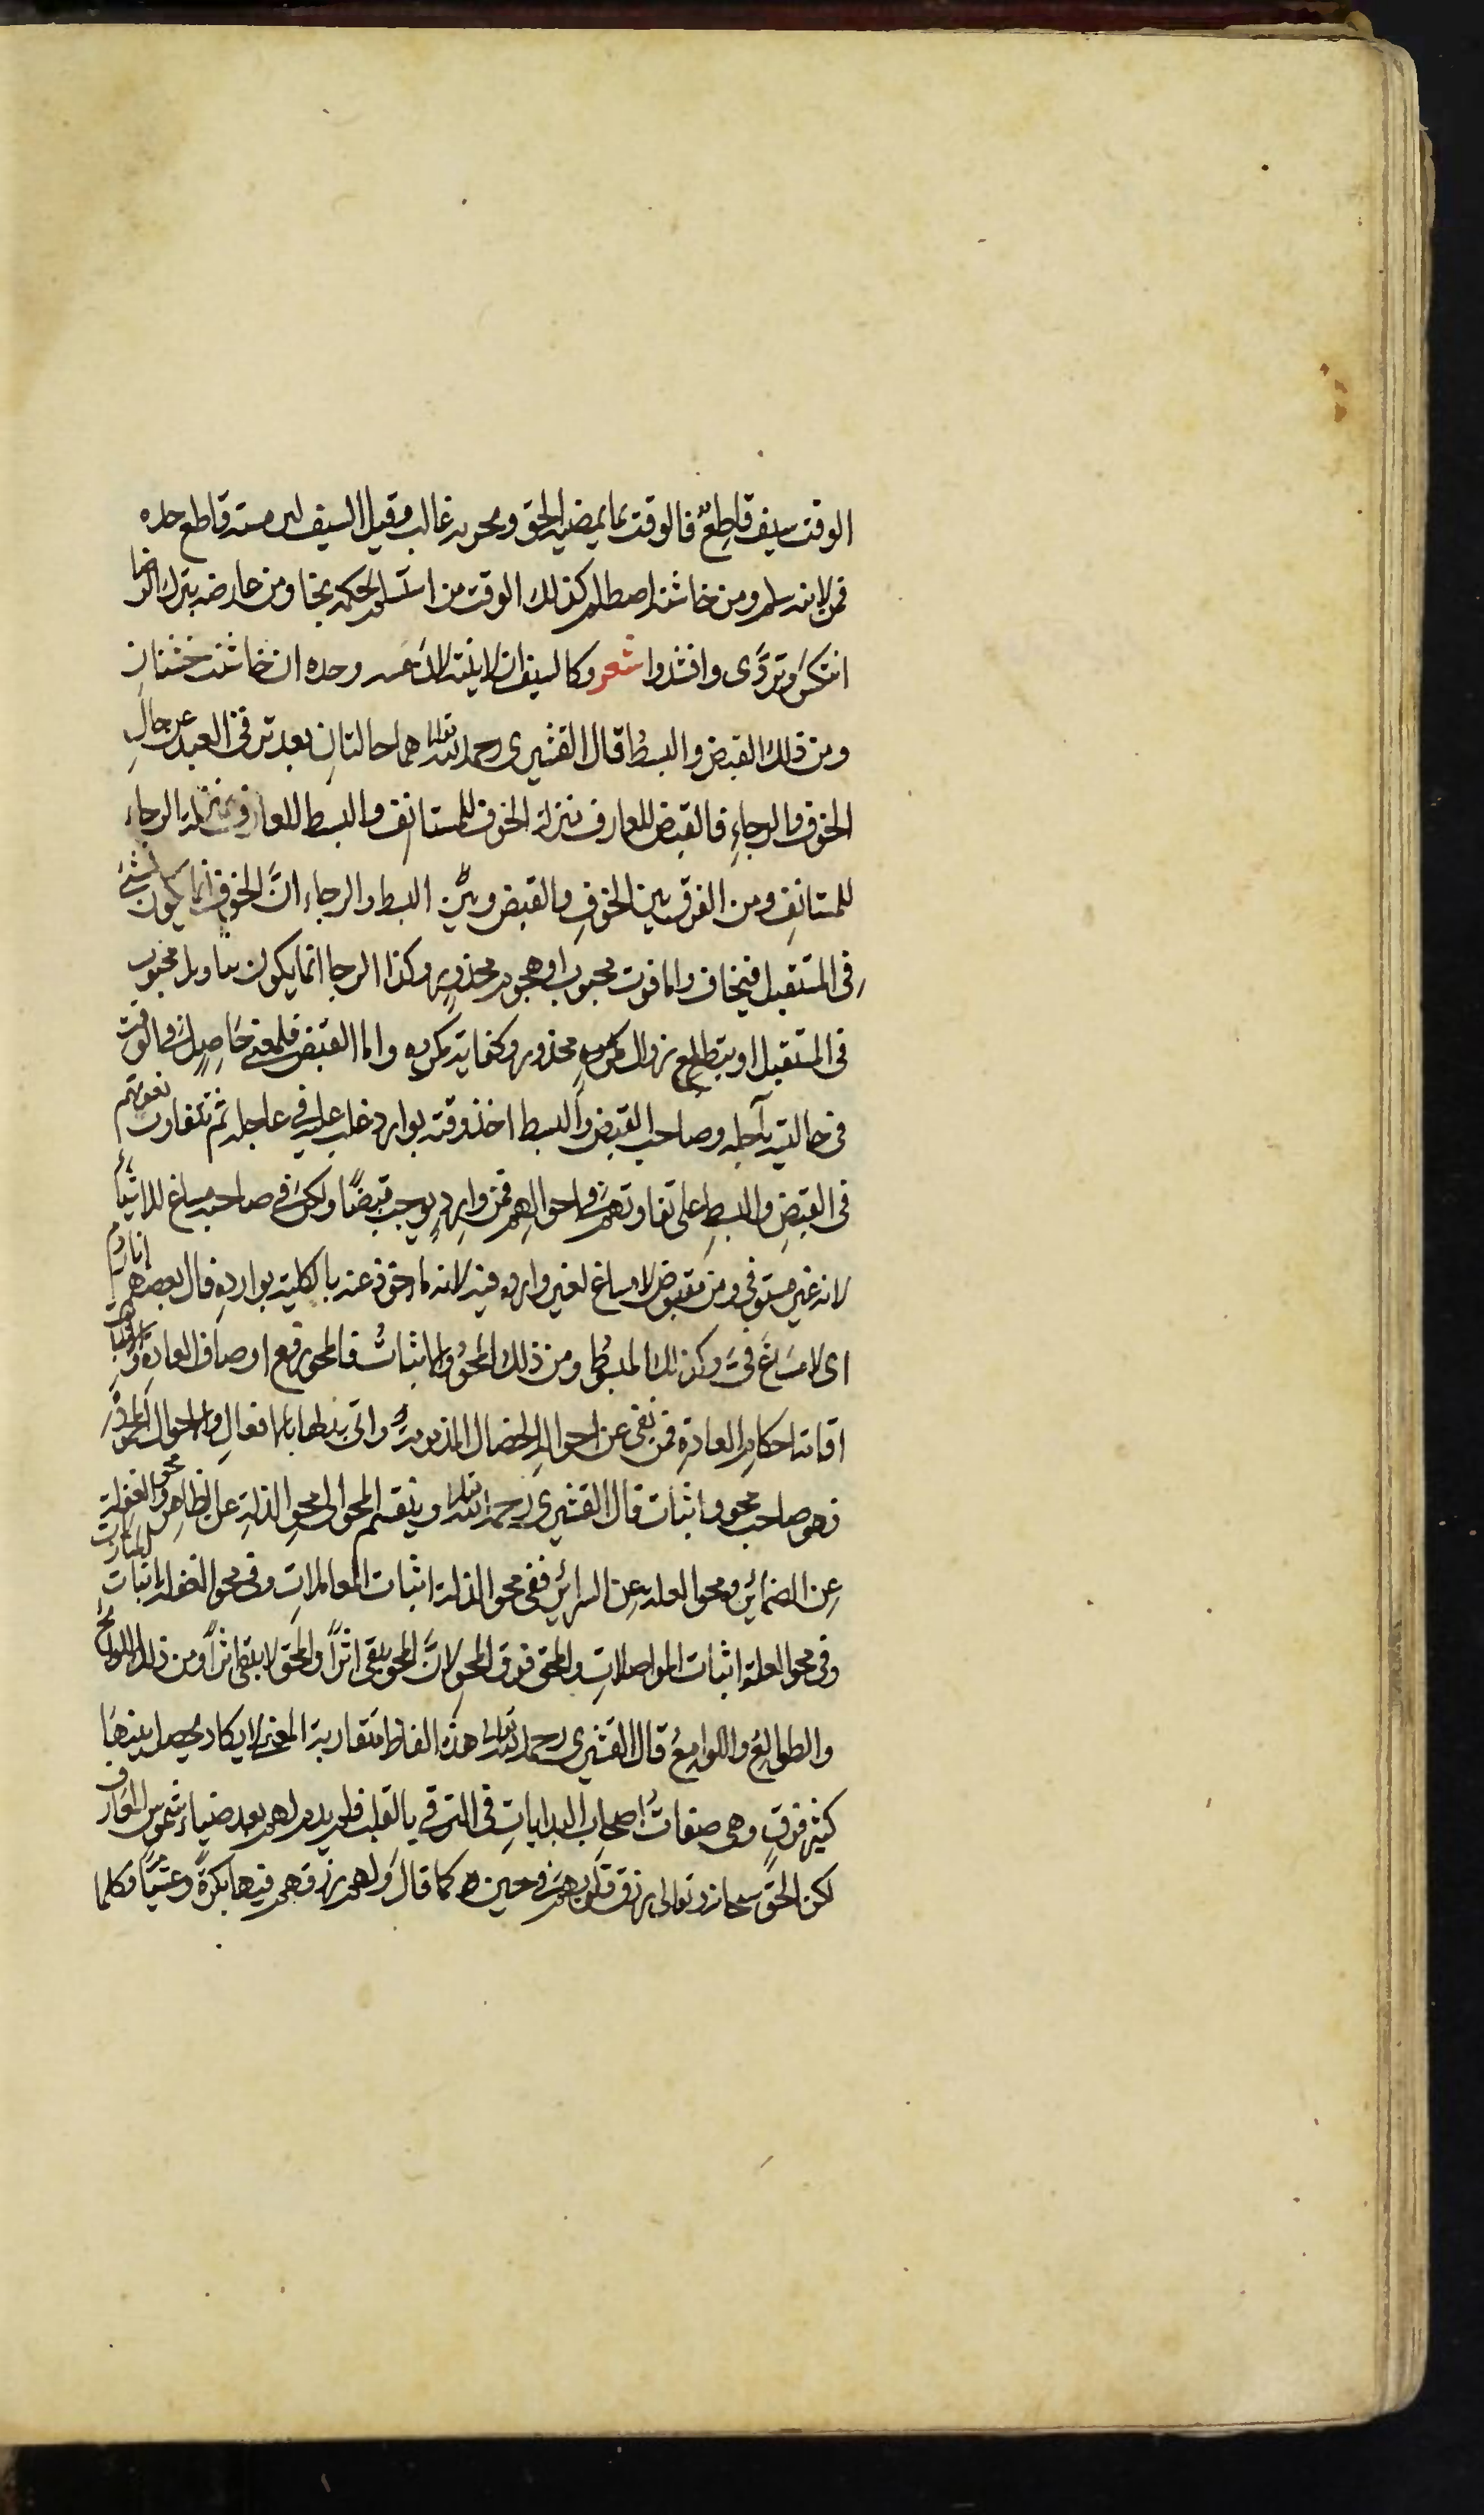 الوقت سيف قاطعٌ فالوقت بما يمضيه الحق ويجريه غالب وقيل السيف لين مسه قاطع حده
فمن لاينه سلم ومن خاشنه اصطلم كذلك الوقت من استسلم لحكمه نجا ومن عارضه بترك الرضا
انتكسَ وتردَّى وانشدوا شعر وكالسيف ان لاينته لانَ مسه وحده ان خاشنته خشنانِ
ومن ذلك القبض والبسطُ قال القشيرى رحمه الله تعالى هما حالتانِ بعد ترقى العبد عن حالِ
الخوف والرجاءِ فالقبض للعارف بمنزلة الخوف للمستانف والبسط للعارف بمنزلة الرجاء
للمستانفِ ومن الفرق بين الخوفِ والقبض وبين البسط والرجاء انَّ الخوف انما يكون من شئ
فى المستقبل فيخاف واما فوت محبوب او هجوم محذورٍ وكذا الرجا انما يكون بتاويل محبوب
فى المستقبل او بتطلع زوال محذورٍ وكفاية مكروه واما القبض فلمعنى حَاصِلٍ فى الوقت
فى حالتيه بآجله وصاحب القبض والبسط اخذ وقته بوارد غلب عليه فى عاجله ثم تتفاوت نعوتهم
فى القبضِ والبسطِ على تفاوتهم فى احوالهم فمن واردٍ يوجب قبضًا ولكن فى صاحبه مساغ للاشياءِ
لانه غير مستوفى ومن مقبوض لا مساغ لغير وارده فيه لانه ماخوذ عنه بالكلية بوارده قال بعضهم انا ردم
اى لا مساغَ فىَّ وكذلك المبسوطُ ومن ذلك المحوُ والاثباتُ فالمحو رفع اوصاف العادةِ والاثبات
اقامة احكامِ العادة فمن نفى عن احوالهِ الخصال المذمومة واتى بدلها بالافعالِ والاحوال المحمودة
فهو صاحب محوٍ واثبات قال القشيرى رحمه الله تعالى وينقسم المحو الى محو الذلة عن الظاهر ومحو الغفلة
عن الضمائرِ ومحو العلة عن السرائرِ ففى محو الذلة اثبات المعاملاتِ وفى محو الغفلة اثبات المنازلات
وفى محو العلة اثبات المواصلاتِ والمحق فوق المحوِ لانَّ المحو يبقى اثرًا والمحق لا يبقى اثرًا ومن ذلك اللوائحُ
والطوالعُ واللوامعُ قال القشيرى رحمه الله تعالى هذه الفاظ متقاربة المعنى لا يكاد يحصل بينها
كثير فرقٍ وهى صفاتُ اصحاب البداياتِ فى الترقى بالقلب فلم يدم لهم بعد ضياء شموس المعارف
لكن الحق سبحانه وتعالى يرزق قلوبهم فى حين كما قال ولهم رزقهم فيها بكرةً وعشيًا فكلما